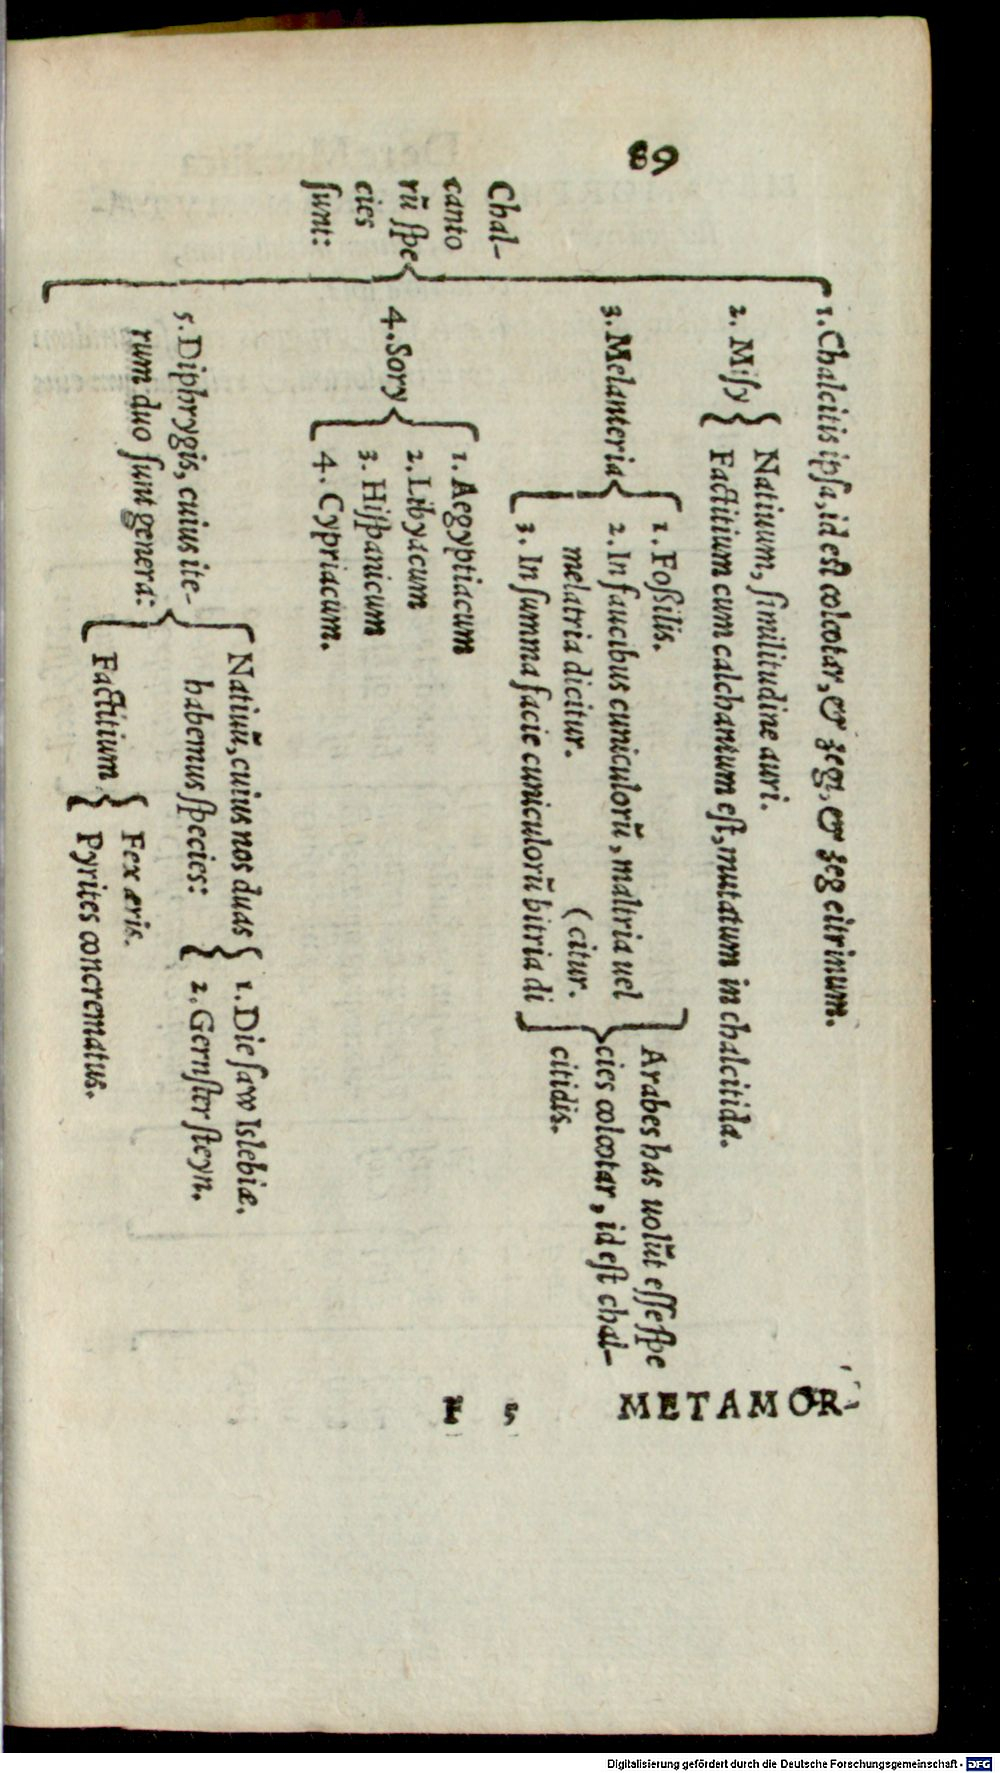 89
Chal-
canto
rũ ſpe
cies
ſunt:
1. Chalcitis ipſa, id eſt colcotar, & zeg, & zeg citrinum.
2. Miſy
Natiuum, ſimilitudine auri.
Factitium cum calchantum eſt, mutatum in chalcitida.
3. Melanteria
1. Foßilis.
2. In faucibus cuniculorũ, maltria uel
melatria dicitur.
(citur.
3. In ſumma facie cuniculorũ bitria di
Arabes has uolũt eſſe ſpe
cies colcotar, id eſt chal-
citidis.
4. Sory
1. Aegyptiacum
2. Libyacum
3. Hiſpanicum
4. Cypriacum.
5. Diphrygis, cuius ite-
rum duo ſunt genera:
Natiuũ, cuius nos duas
habemus ſpecies:
1. Die ſaw Islebiæ.
2. Gernſter ſteyn.
Factitium
Fex æris.
Pyrites concrematus.
5
METAMOR-
Digitalisierung gefördert durch die Deutsche Forschungsgemeinschaft - DFG